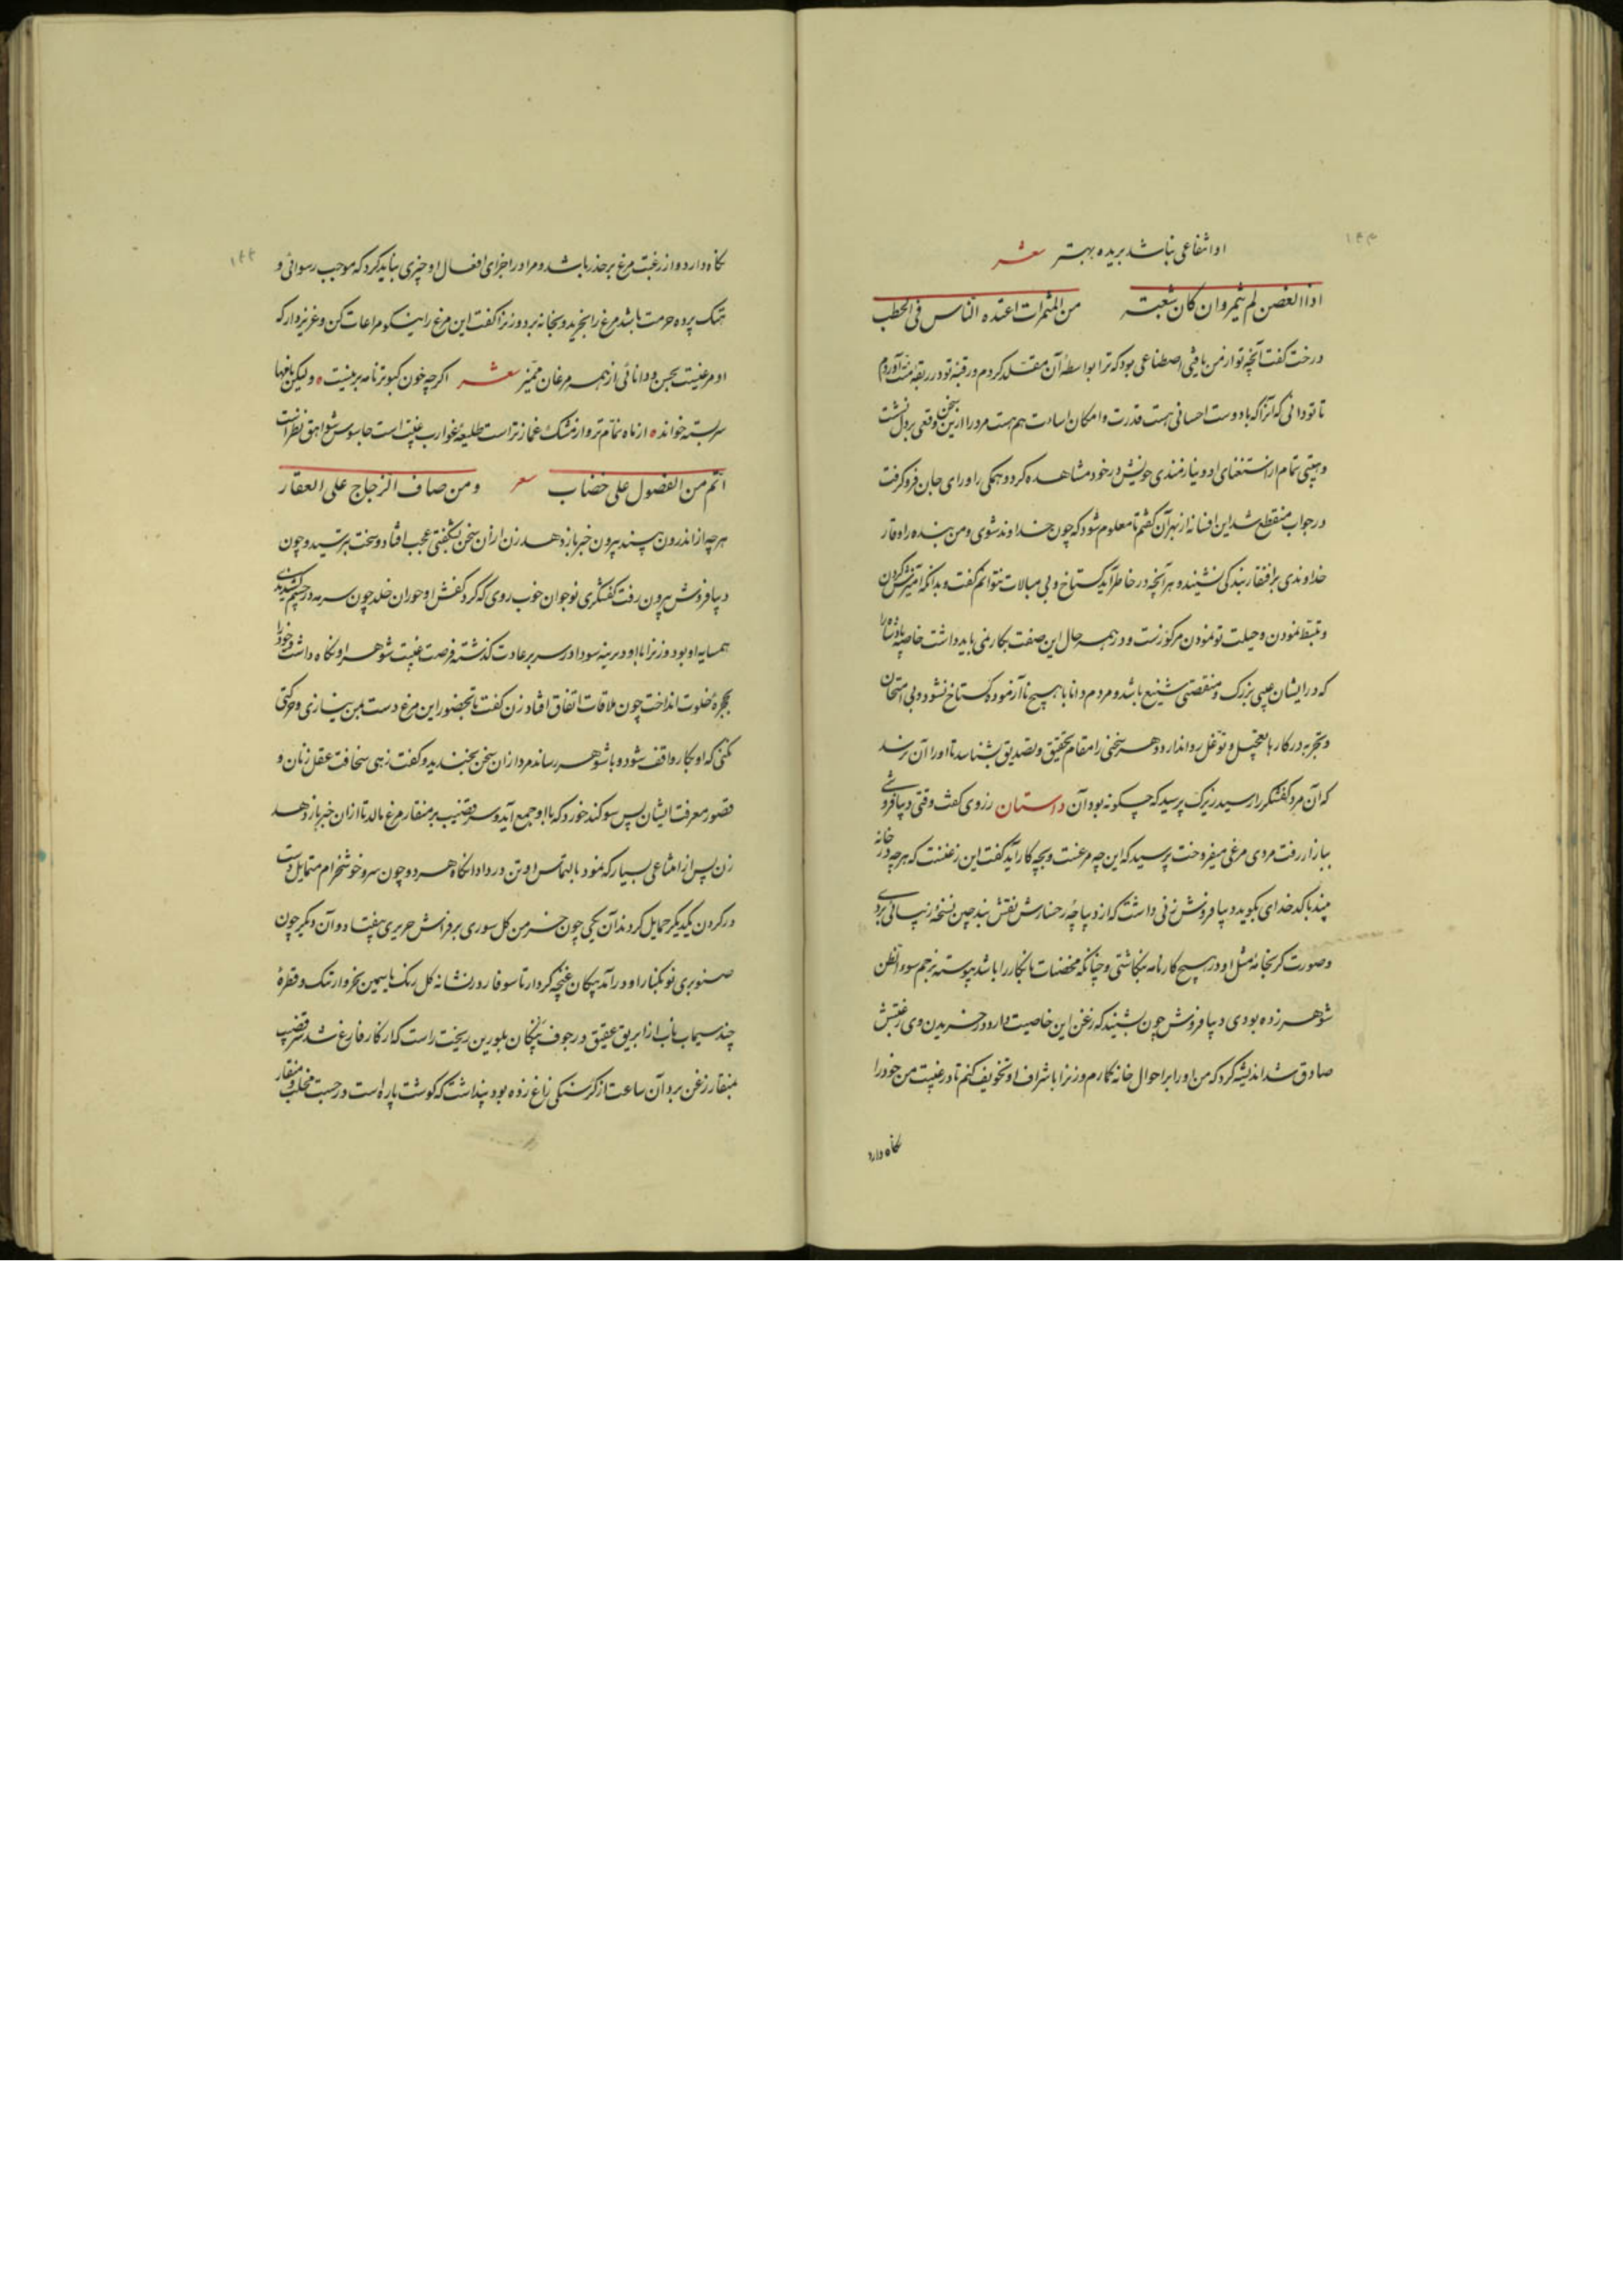 ۱۴۳
او انتفاعی نباشد بریده بهتر شعر
اذا الغصن لم یثمر وان کان شعبة من المثمرات اعتده الناس فی الحطب
درخت گفت آنچه تو از من یافتی اصطناعی بود که ترا بواسطهٔ آن مقلد کردم و رقبهٔ تو در ربقهٔ منت آوردم
تا تو دانی که آنرا که با دوست احسانی هست قدرت و امکان اساءت هم هست مرد را ازین سخن وقعی بر دل نشست
و هیبتی تمام از استغنای او و نیازمندی خویش در خود مشاهده کرد و همگی را ورای جان فرو گرفت
و در جواب منقطع شد این افسانه از بهر آن گفتم تا معلوم شود که چون خداوند شوی و من بنده را وقار
خداوندی بر افتقار بندگی نشیند و هر آنچه در خاطر آید گستاخ و بی مبالات نتوانم گفت و بدانکه آمیزش کردن
و تبسط نمودن و حیلت تو نمودن مرکوزست و در همه حال این صفت بکار نمی باید داشت خاصه پادشاه را
که در ایشان عیبی بزرگ و منقصتی شنیع باشد و مردم دانا با هیچ ناآزموده گستاخ نشود و بی امتحان
و تجربه در کارها تعجیل و توغل روا ندارد و هر سخنی را مقام تحقیق و تصدیق بشناسد تا او را آن نرسد
که آن مرد کفشگر را رسید زیرک پرسید که چگونه بود آن داستان رزوی گفت وقتی دیبافروشی
ببازار رفت مردی مرغی میفروخت پرسید که این چه مرغست و بچه کار آید گفت این زغنست که هر چه در خانه
بیند با کدخدای بگوید دیبافروش زنی داشت که از دیباچهٔ رخسارش نقش بند چین نسخهٔ زیبائی بردی
و صورت گر بخانه مثل او در هیچ کارنامه ننگاشتی و چنانکه مخضبات با نگار را باشد پیوسته برجم سوء الظن
شوهر زده بودی دیبافروش چون بشنید که زغن این خاصیت دارد در خریدن وی رغبتش
صادق شد اندیشه کرد که من او را بر احوال خانه گمارم و زنرا باشراف او تخویف کنم تا در غیبت من خود را
نگاه دارد
۱۴۴
نگاه دارد و از رغبت مرغ بر حذر باشد و مرا در اجرای افعال او چیزی نباید کرد که موجب رسوائی و
هتک پرده حرمت باشد مرغ را بخرید و بخانه برد و زنرا گفت این مرغ را نیکو مراعات کن و عزیز دار که
او مرغیست بحسن و دانائی از همه مرغان ممیز شعر اگرچه چون کبوتر نامه بر نیست ولیکن نامها
سر بسته خواند از ماه نمام تر و از مشک غمازتر است طلیعهٔ غوارب غیبت است جاسوس شواهق نظر است
انم من النصول علی خضاب شعر و من صاف الزجاج علی العقار
هر چه از اندرون بیند بیرون خبر باز دهد زن از آن سخن بشگفتی عجب افتاد و سخت بترسید و چون
دیبافروش بیرون رفت کفشگری نوجوان خوب روی که گرد کفش او حوران خلد چون سرمه در چشم کشیدندی
همسایه او بود و زنرا با او دیرینه سودا در سر بر عادت گذشته فرصت غیبت شوهر او نگاه داشت و خود را
بحجرهٔ خلوت انداخت چون ملاقات اتفاق افتاد زن گفت تا بحضور این مرغ دست بمن نیازی و حرکتی
نکنی که او بکار واقف شود و با شوهر رساند مرد از آن سخن بخندید و گفت زهی سخافت عقل زنان و
قصور معرفت ایشان پس سوگند خورد که با او جمع آید و سر قضیب بر منقار مرغ مالد تا از آن خبر باز دهد
زن پس از امتناعی بسیار که نمود بالتماس او تن در داد آنگاه هر دو چون سرو خوشخرام متمایل دست
در گردن یکدیگر حمایل کردند آن یکی چون خرمن گل سوری بر فراش حریری بیفتاد و آن دیگر چون
صنوبری نو بکنار او در آمد پیکان غنچه کردار تا سوفار در نشانه گل رنگ یاسمین بخروار تنگ و قطرهٔ
چند سیماب ناب از ابریق عقیق در جوف پنگان بلورین ریخت راست که از کار فارغ شد سر قضیب
بمنقار زغن برد آن ساعت از گرسنگی زاغ زده بود پنداشت که گوشت پاره است در جست مخلب و منقار